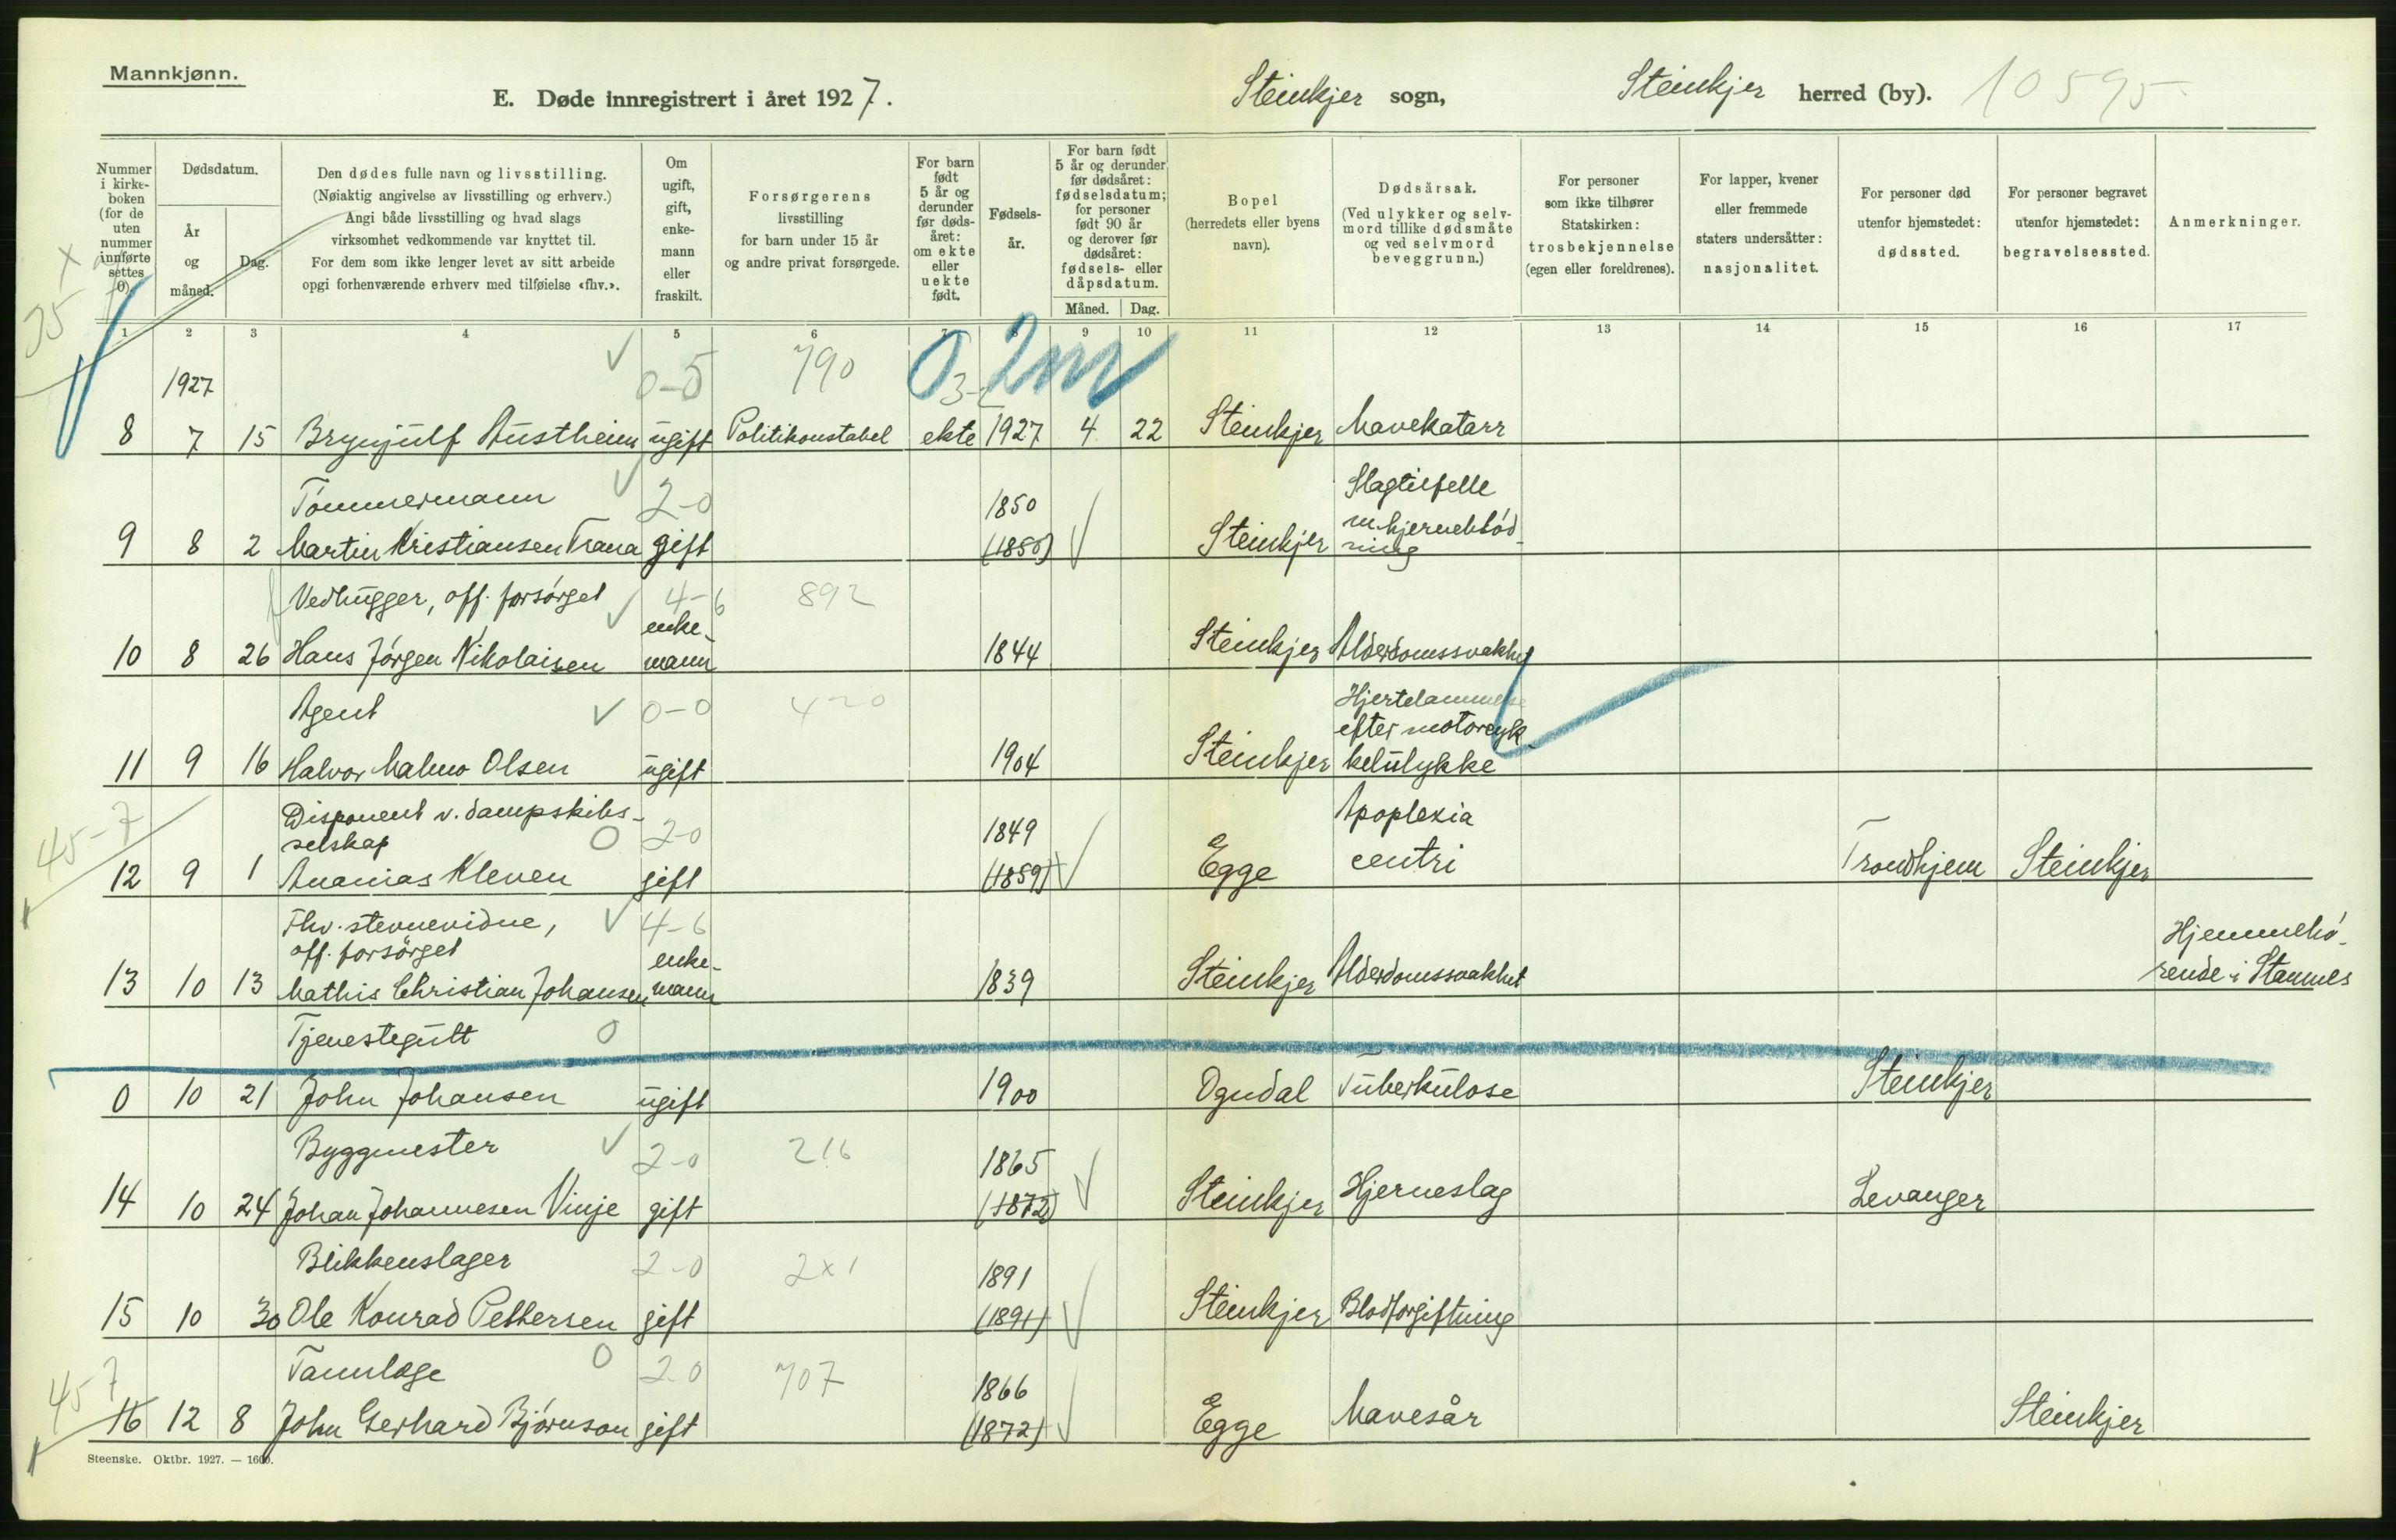 Mannkjønn.
E. Døde innregistrert i året 1927. Steinkjer sogn, Steinkjer herred (by). 10595
Nummer i kirkeboken (for de uten nummer innførte settes 0).
Dødsdatum.
År og måned.
Dag.
Den dødes fulle navn og livsstilling.
(Nøiaktig angivelse av livsstilling og erhverv.)
Angi både livsstilling og hvad slags
virksomhet vedkommende var knyttet til.
For dem som ikke lenger levet av sitt arbeide
opgi forhenværende erhverv med tilføielse «fhv.».
Om ugift, gift, enkemann eller fraskilt.
Forsørgerens
livsstilling
for barn under 15 år
og andre privat forsørgede.
For barn født 5 år og derunder før dødsåret: om ekte eller uekte født.
Fødselsår.
For barn født 5 år og derunder før dødsåret: fødselsdatum; for personer født 90 år og derover før dødsåret: fødsels- eller dåpsdatum.
Måned. Dag.
Bopel
(herredets eller byens
navn).
Dødsårsak.
(Ved ulykker og selvmord tillike dødsmåte og ved selvmord beveggrunn.)
For personer
som ikke tilhører
Statskirken:
trosbekjennelse
(egen eller foreldrenes).
For lapper, kvener
eller fremmede
staters undersåtter:
nasjonalitet.
For personer død
utenfor hjemstedet:
dødssted.
For personer begravet
utenfor hjemstedet:
begravelsessted.
Anmerkninger.
1 2 3 4 5 6 7 8 9 10 11 12 13 14 15 16 17
1927 0-5 790 2m
8 7 15 Brynjulf Austheim ugift Politikonstabel ekte 1927 4 22 Steinkjer Mavekatarr
Tømmermann 2-0 1850 Slagtilfelle
m. hjerneblød-
9 8 2 Martin Kristiansen Trana gift (1850) Steinkjer ning
Vedhugger, off. forsørget 4-6 892
enke-
10 8 26 Hans Jørgen Nikolaisen mann 1844 Steinkjer Alderdomssvakhet
Agent 0-0 420 Hjertelammelse
efter motorcyk-
11 9 16 Halvor Malmo Olsen ugift 1904 Steinkjer kelulykke
45-7 Disponent v. dampskibs-
selskap 0 2-0 1849 Apoplexia
12 9 1 Ananias Kleven gift (1859) Egge centri Trondhjem Steinkjer
Fhv. stevnevidne, 4-6
off. forsørget enke- Hjemmehø-
13 10 13 Mathis Christian Johansen mann 1839 Steinkjer Alderdomssvakhet rende i Stamnes
Tjenestegutt 0
0 10 21 John Johansen ugift 1900 Ogndal Tuberkulose Steinkjer
Byggmester 2-0 216 1865
14 10 24 Johan Johannesen Vinje gift (1872) Steinkjer Hjerneslag Levanger
Blikkenslager 2-0 2x1 1891
15 10 30 Ole Konrad Pettersen gift (1891) Steinkjer Blodforgiftning
45 7 Tannlæge 0 2 0 707 1866
16 12 8 John Gerhard Bjørnson gift (1872) Egge Mavesår Steinkjer
Steenske. Oktbr. 1927. — 1600.